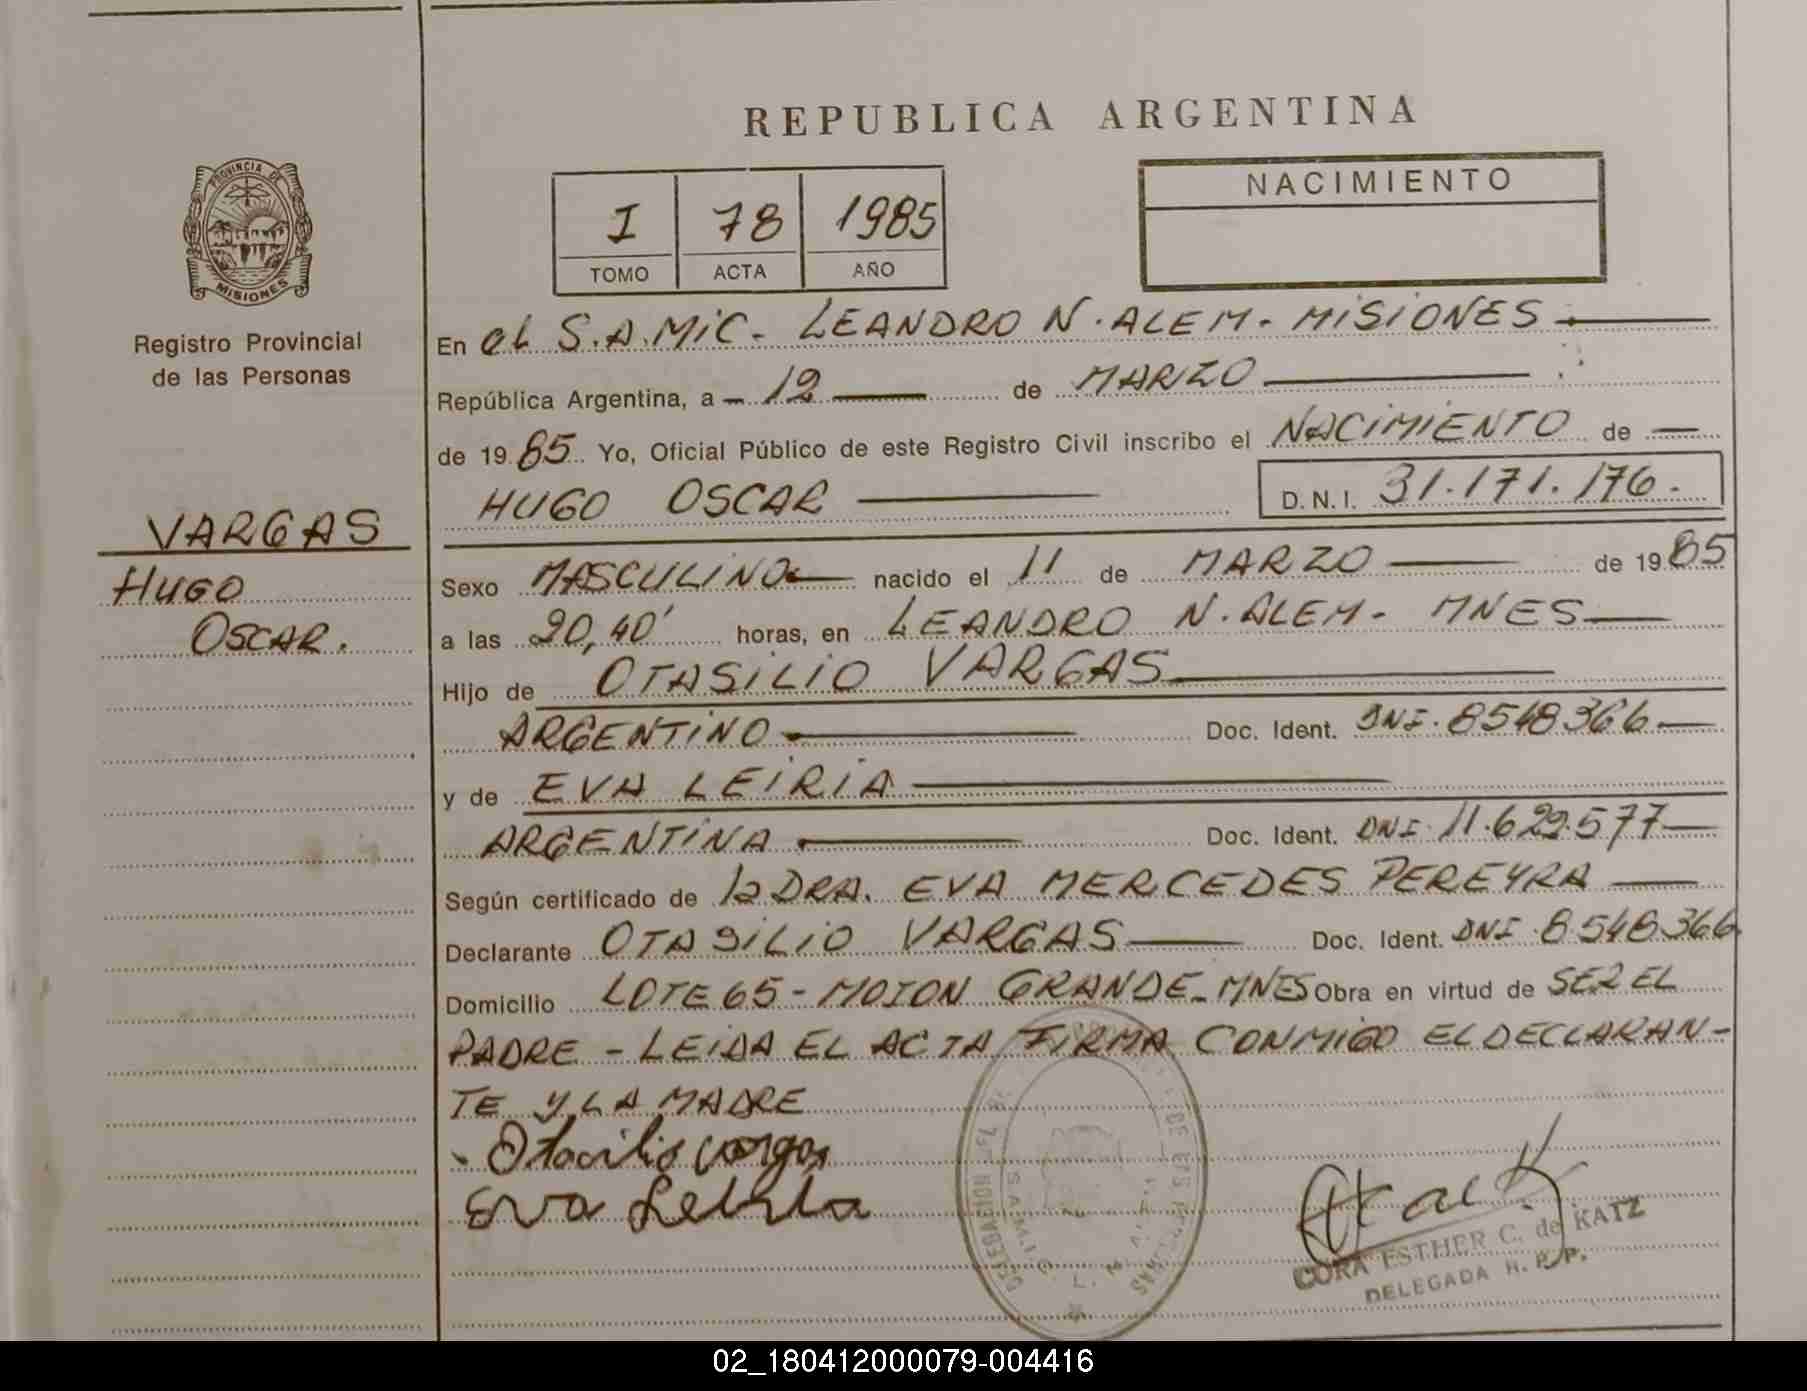 REPUBLICA ARGENTINA
PROVINCIA DE
MISIONES
Registro Provincial
de las Personas
VARGAS
HUGO
OSCAR.
I 78 1985
TOMO ACTA AÑO
NACIMIENTO
En el S.A.MiC. LEANDRO N. ALEM. MiSiONES
República Argentina, a 12 de MARZO
de 1985 Yo, Oficial Público de este Registro Civil inscribo el NACiMiENTO de
HUGO OSCAR D.N.I. 31.171.176.
Sexo MASCULiNO nacido el 11 de MARZO de 1985
a las 20,40' horas, en LEANDRO N. ALEM - MNES
Hijo de OTASiLiO VARGAS
ARGENTiNO Doc. Ident. DNI. 8548366
y de EVA LEiRiA
ARGENTiNA Doc. Ident. DNI. 11.629.577
Según certificado de la DRA. EVA MERCEDES PEREYRA
Declarante OTASiLiO VARGAS Doc. Ident. DNI. 8548366
Domicilio LOTE 65 - MOJON GRANDE - MNES Obra en virtud de SER EL
PADRE - LEiDA EL ACTA FiRMA CONMiGO EL DECLARAN-
TE Y LA MADRE
Otacilio vargas
Eva
CORA ESTHER C. de KATZ
DELEGADA R. P. P.
02_180412000079-004416